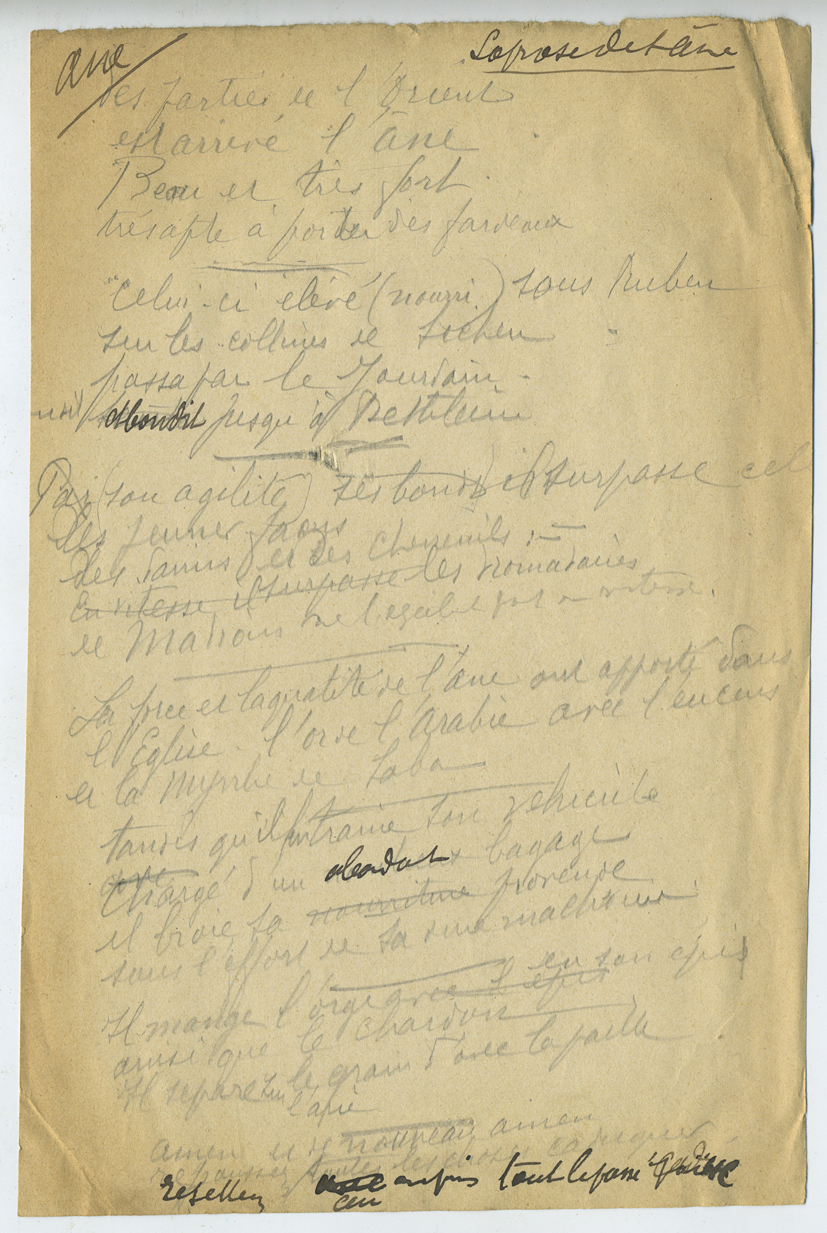 âne
La prose de l'âne
des parties de l'Orient
est arrivé l'âne
Beau et très fort
très apte à porter des fardeaux
Celui-ci élevé (nourri) sous Ruben
sur les collines de Sichen
passa par le Jourdain
abondit jusqu'à Bethleem
Par (son agilité) ses bonds il surpasse cel
les jeunes faons
des daims et des chevreuils
En vitesse il surpasse les dromadaires
de Madian
La force et la qualité de l'âne ont apporté dans
l'Eglise l'or de l'Arabie avec l'encens
et la Myrrhe de Saba
tandis qu'il traine son vehicule
chargé d'un bagage
il broie sa nourriture
sous l'effort de sa dure machoire
Il mange l'orge avec l'épis en son épis
ainsi que le chardon
Il separe le grain d'avec la paille
l'aire
amen et de nouveau amen
tout le passé